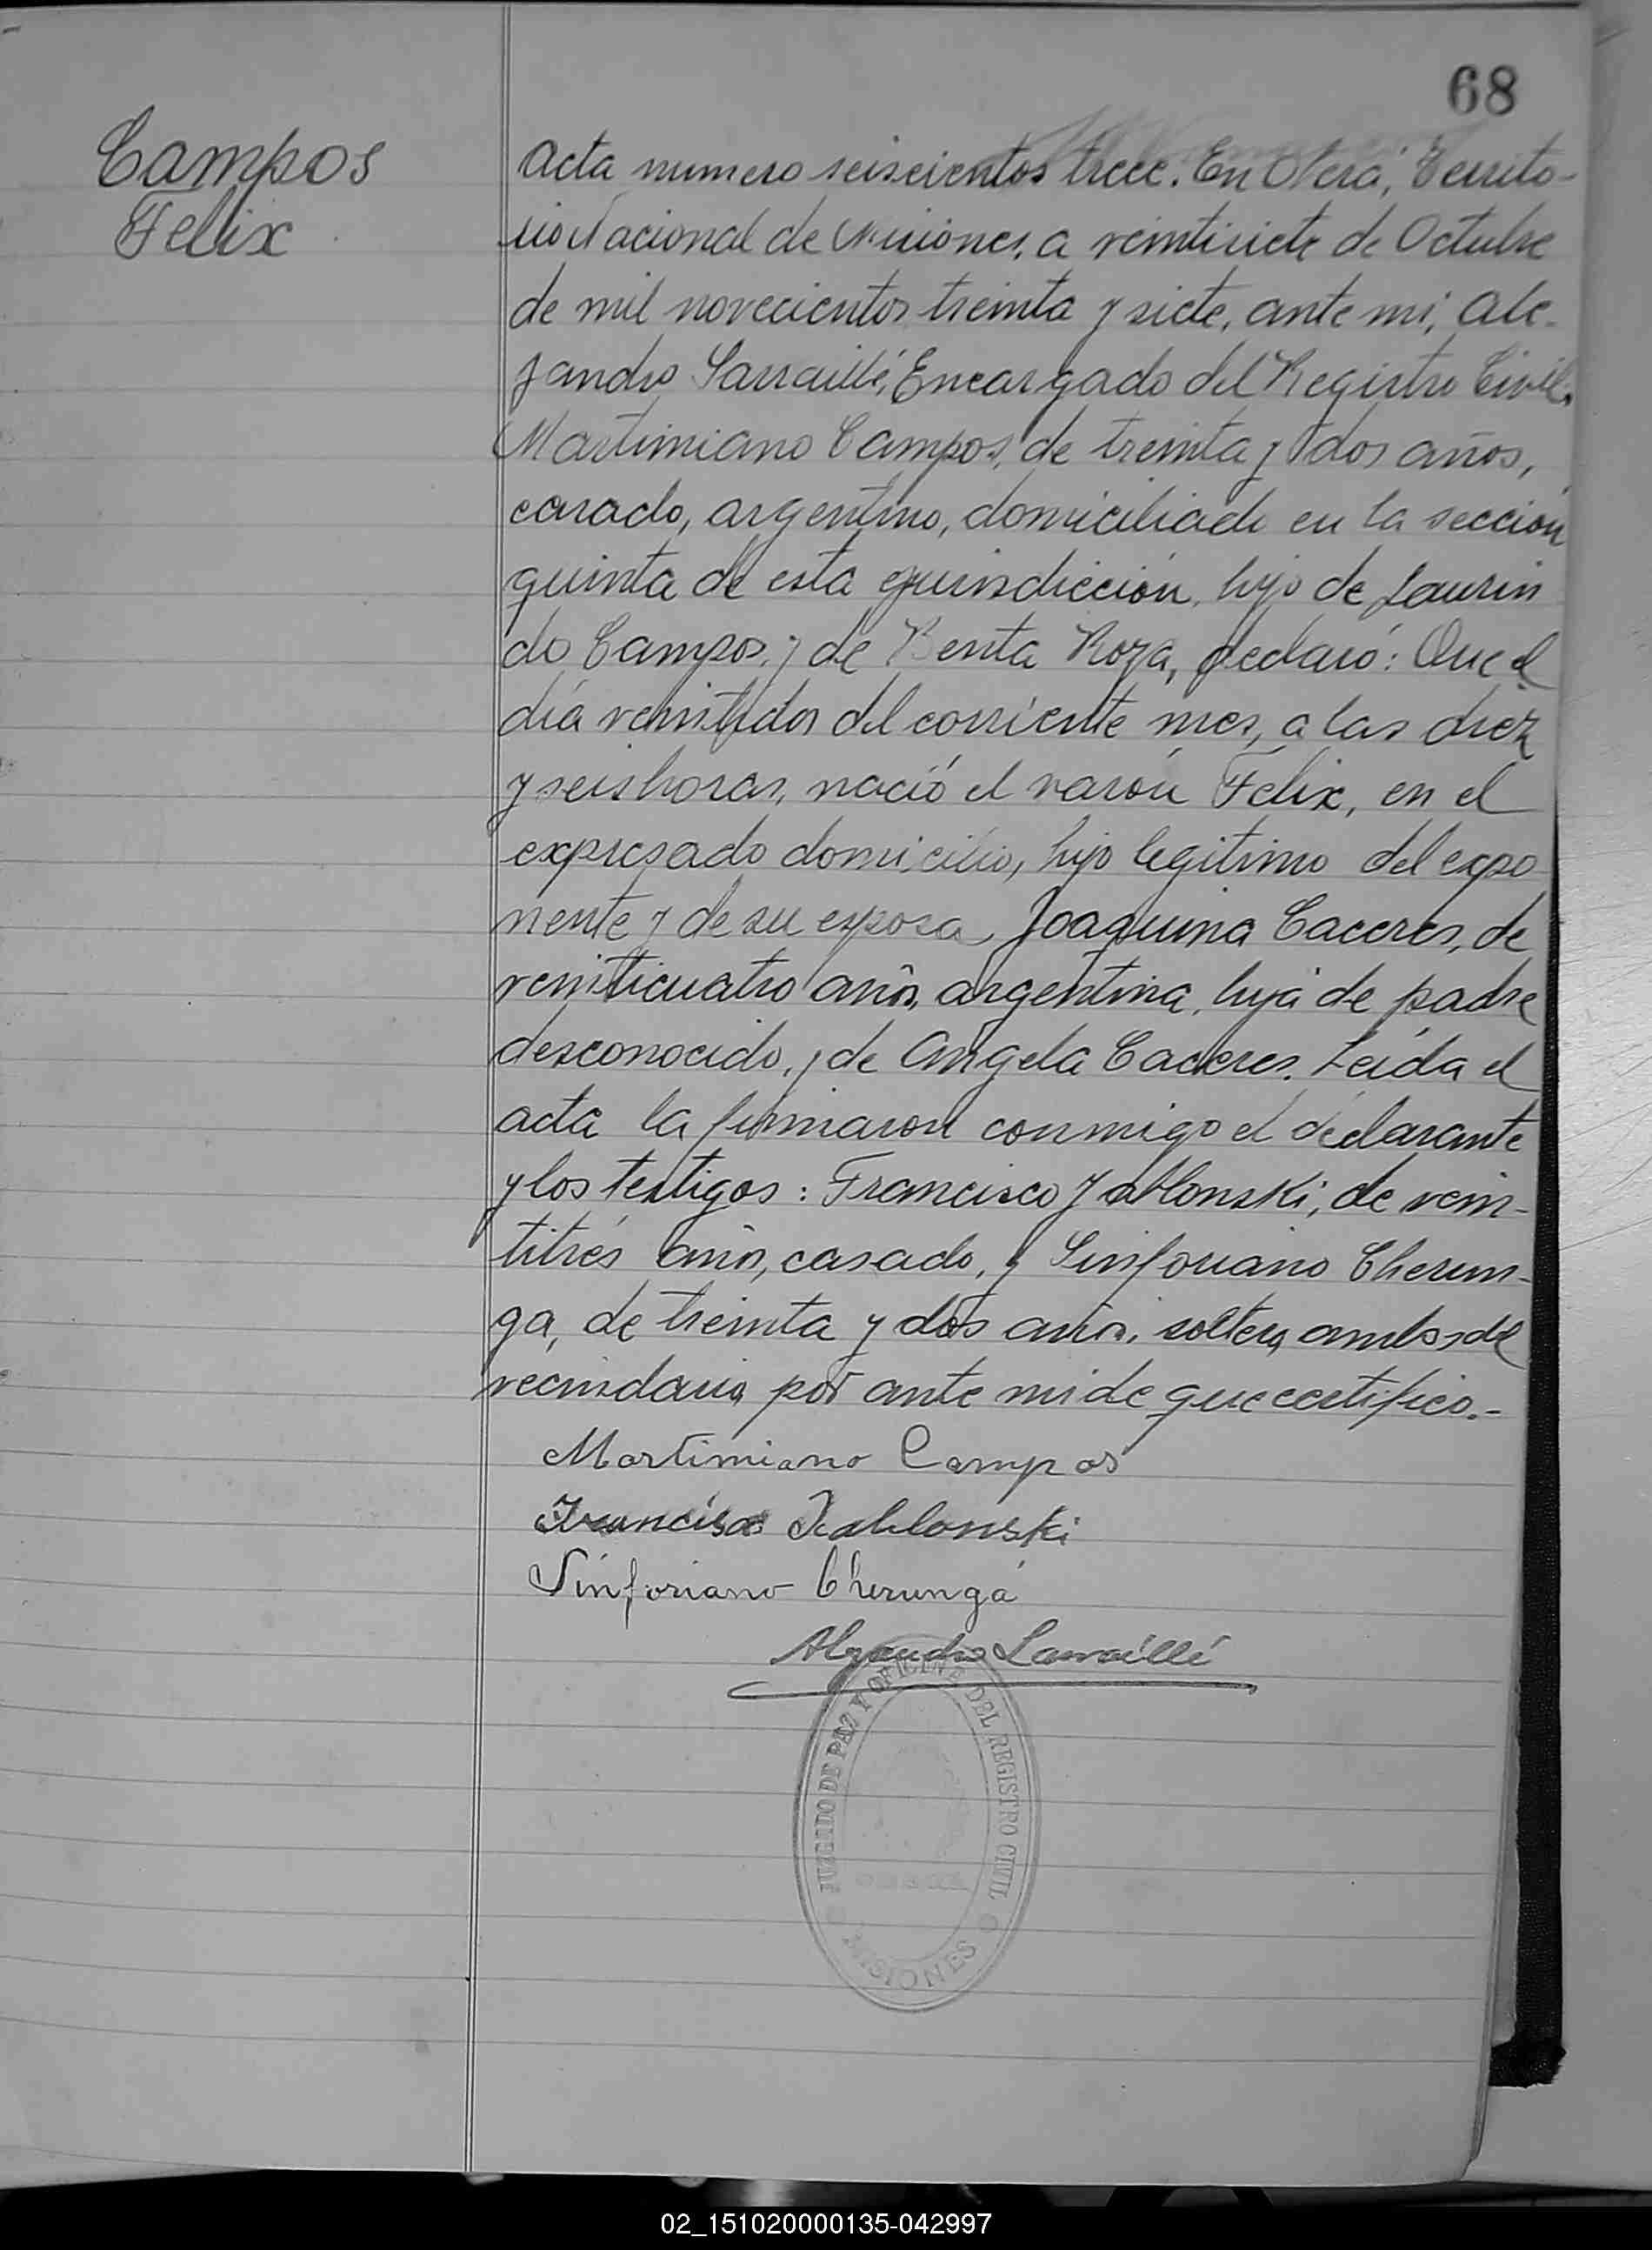 68
Campos
Felix
Acta numero seiscientos trece. En Oberá, Territo-
rio Nacional de Misiones, a veintisiete de Octubre
de mil novecientos treinta y siete, ante mi, Ale-
jandro Sarraillé, Encargado del Registro Civil,
Martimiano Campos, de treinta y dos años,
casado, argentino, domiciliado en la sección
quinta de esta jurisdicción, hijo de Laurin
do Campos, y de Benta Roza, declaró: Que el
día veintidos del corriente mes, a las diez
y seis horas, nació el varón Felix, en el
expresado domicilio, hijo legitimo del expo
nente y de su esposa, Joaquina Caceres, de
veinticuatro años, argentina, hija de padre
desconocido, y de Angela Caceres. Leída el
acta la firmaron conmigo el declarante
y los testigos: Francisco Yablonski, de vein-
titrés años, casado, y Sinforiano Cherun-
ga, de treinta y dos años, soltero, ambos del
vecindario, por ante mi de que certifico.-
Martimiano Campos
Francisco Yablonski
Sinforiano Cherunga
Alejandro Sarraillé
JUZGADO DE PAZ Y OFICINA DEL REGISTRO CIVIL
MISIONES
02_151020000135-042997